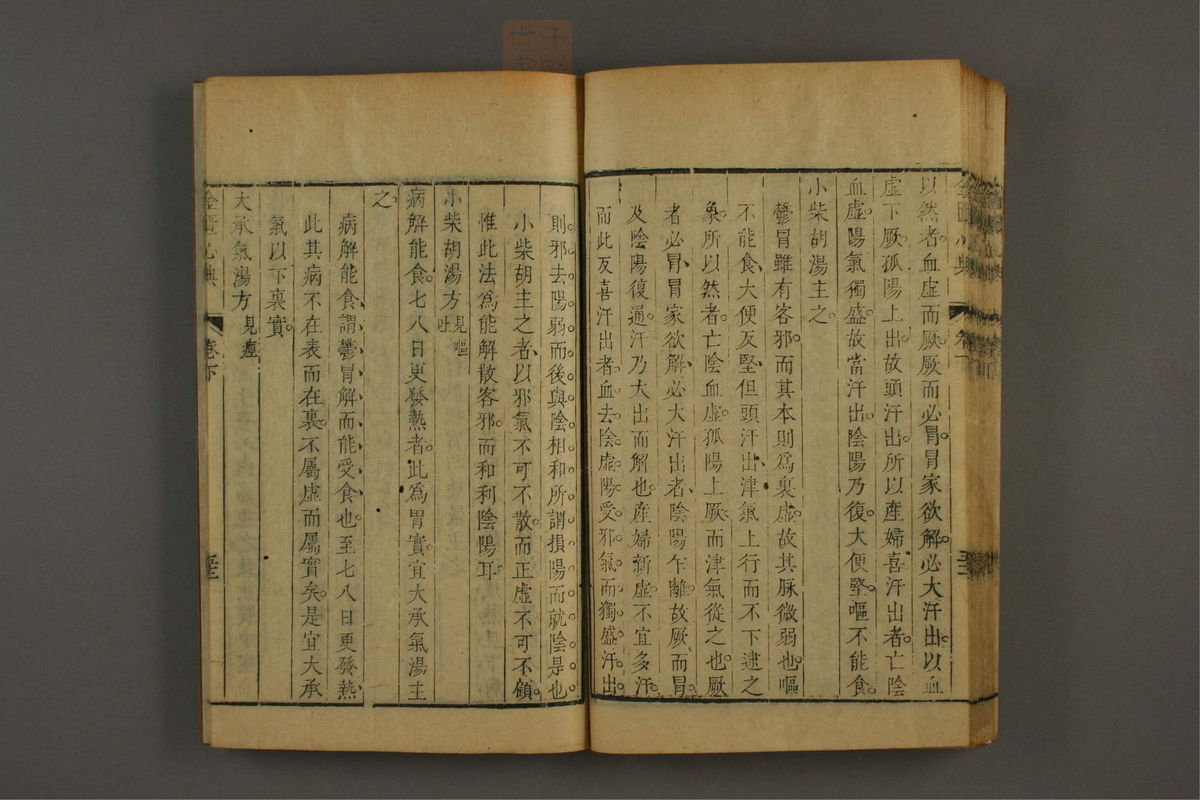 以然者血虛而厥厥而必冒冒家欲解必大汗出以血
虛下厥孤陽上出故頭汗出所以產婦喜汗出者亡陰
血虛陽氣獨盛故當汗出陰陽乃復大便堅嘔不能食
小柴胡湯主之
鬱冒雖有客邪而其本則爲裏虛故其脉微弱也嘔
不能食大便反堅但頭汗出津氣上行而不下逮之
象所以然者亡陰血虛孤陽上厥而津氣從之也厥
者必冒冒家欲解必大汗出者陰陽乍離故厥而冒
及陰陽復通汗乃大出而解也產婦新虛不宜多汗
而此反喜汗出者血去陰虛陽受邪氣而獨盛汗出
則邪去陽弱而後與陰相和所謂損陽而就陰是也
小柴胡主之者以邪氣不可不散而正虛不可不顧
惟此法爲能解散客邪而和利陰陽耳
小柴胡湯方見嘔吐
病解能食七八日更發熱者此爲胃實宜大承氣湯主
之
病解能食謂鬱冒解而能受食也至七八日更發熱
此其病不在表而在裏不屬虛而屬實矣是宜大承
氣以下裏實
大承氣湯方見痙
金匱心典 卷下